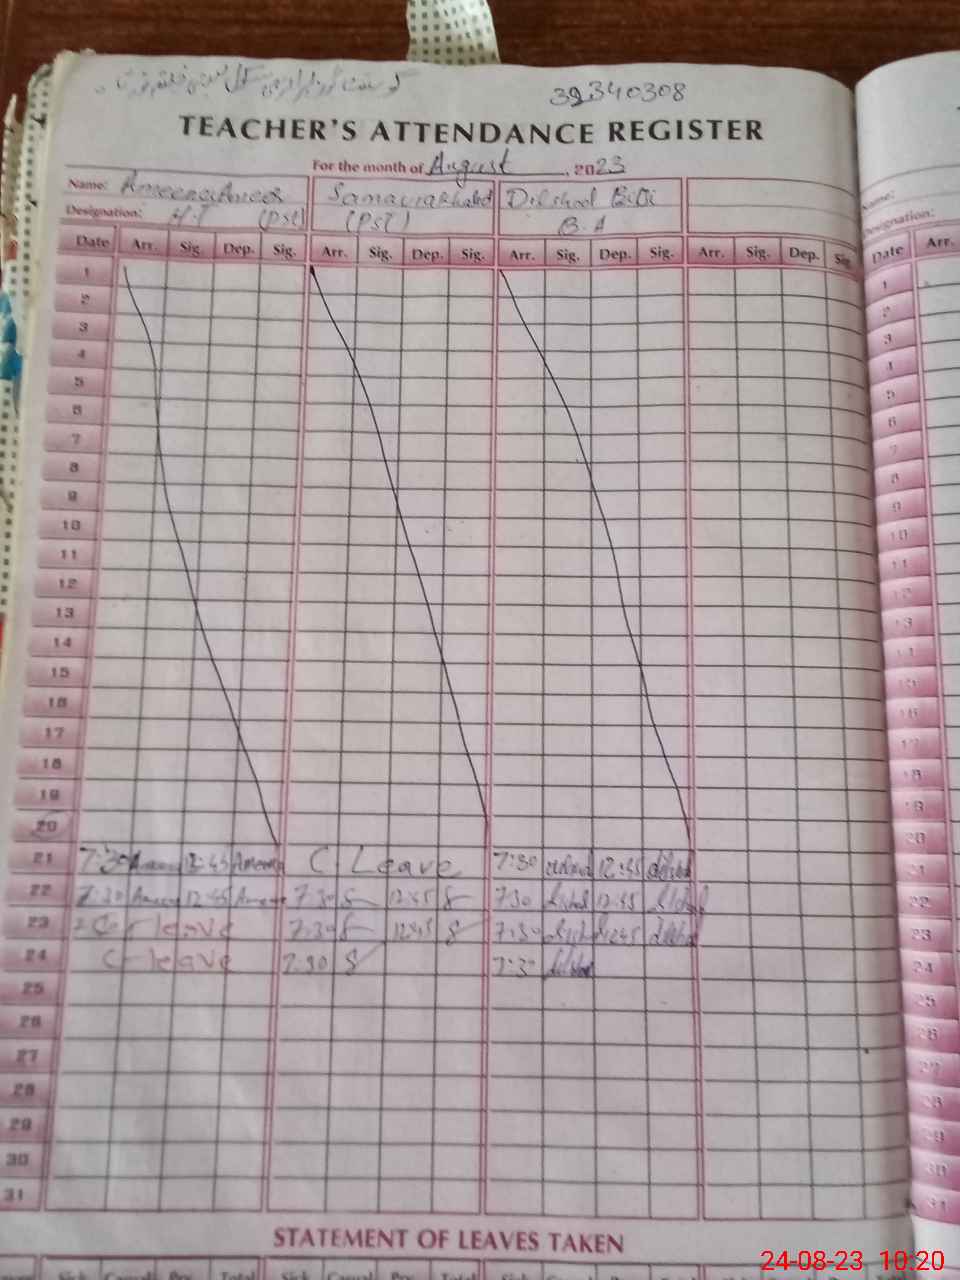 39340308
TEACHER'S ATTENDANCE REGISTER
For the month of August, 2023
Name: Ameena Ameer Samavia Khaled Dilshad BiBi
Designation: H.T (Pst) (PST) B.A
Date Arr. Sig. Dep. Sig. Arr. Sig. Dep. Sig. Arr. Sig. Dep. Sig. Arr. Sig. Dep. Sig.
1
2
3
4
5
6
7
8
9
10
11
12
13
14
15
16
17
18
19
20
21 7:30 Ameena 12:45 Ameena C. Leave 7:30 dilshad 12:45 dilshad
22 7:30 Ameena 12:45 Ameena 7:30 S 12:45 S 7:30 dilshad 12:45 dilshad
23 C leave 7:30 S 12:45 S 7:30 dilshad 12:45 dilshad
24 C leave 7:30 S 7:30 dilshad
25
26
27
28
29
30
31
STATEMENT OF LEAVES TAKEN
Sick Casual Prv. Total Sick Casual Prv. Total Sick Casual Prv. Total
Name:
Designation:
Date Arr.
1
2
3
4
5
6
7
8
9
10
11
12
13
14
15
16
17
18
19
20
21
22
23
24
25
26
27
28
29
30
31
24-08-23 10:20